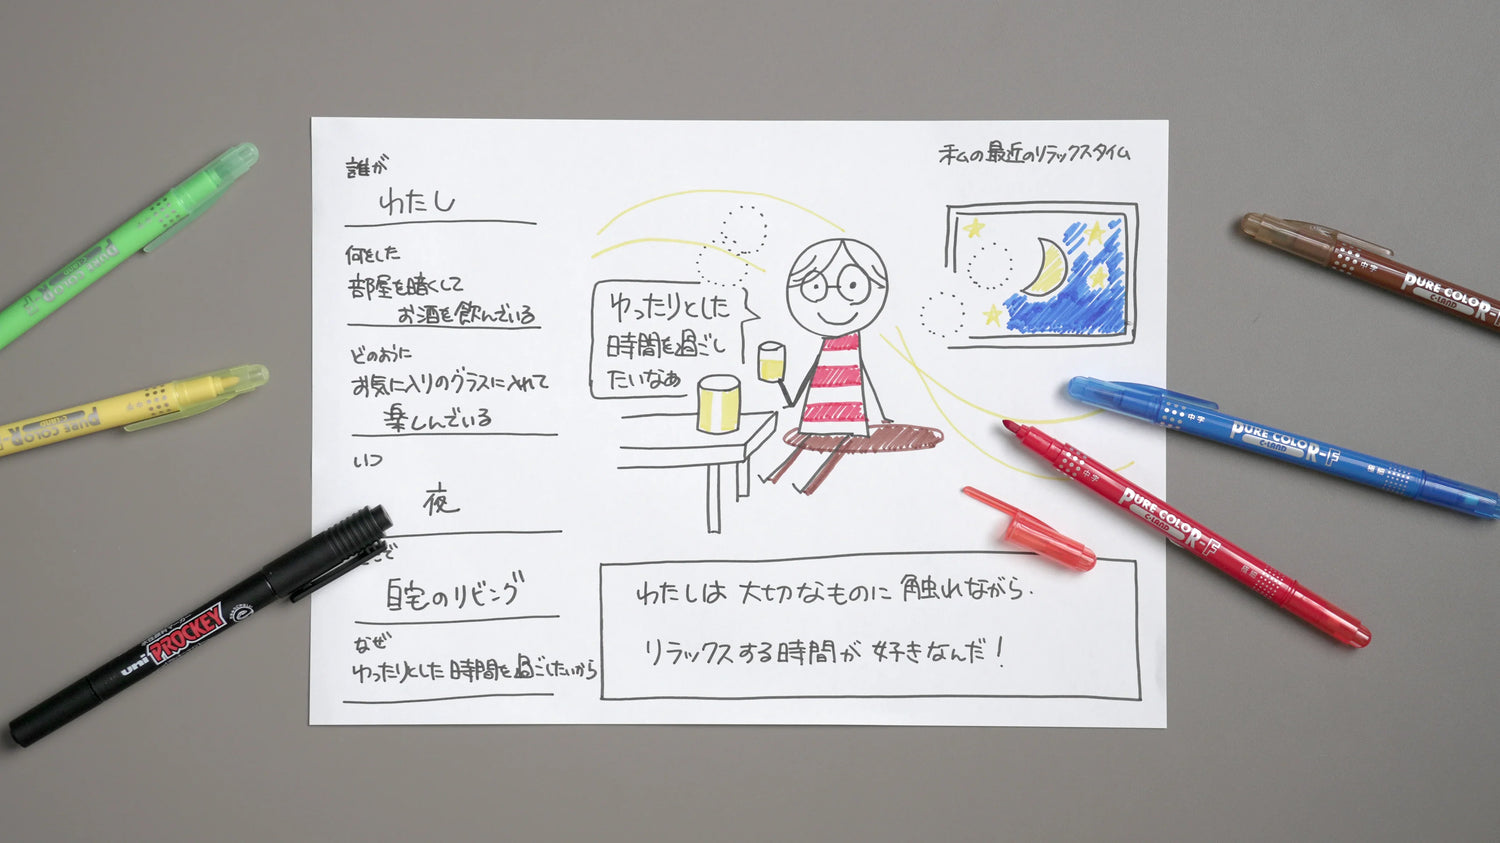 私の最近のリラックスタイム
誰が
わたし
何をした
部屋を暗くして
お酒を飲んでいる
どのように
お気に入りのグラスに入れて
楽しんでいる
いつ
夜
で
自宅のリビング
なぜ
ゆったりとした時間を過ごしたいから
ゆったりとした
時間を過ごし
たいなぁ
わたしは大切なものに触れながら.
リラックスする時間が好きなんだ!
uni PROCKEY
中字 PURE COLOR-F
C-LAND
中字 PURE COLOR-F 極細
C-LAND
中字 PURE COLOR-F 極細
C-LAND